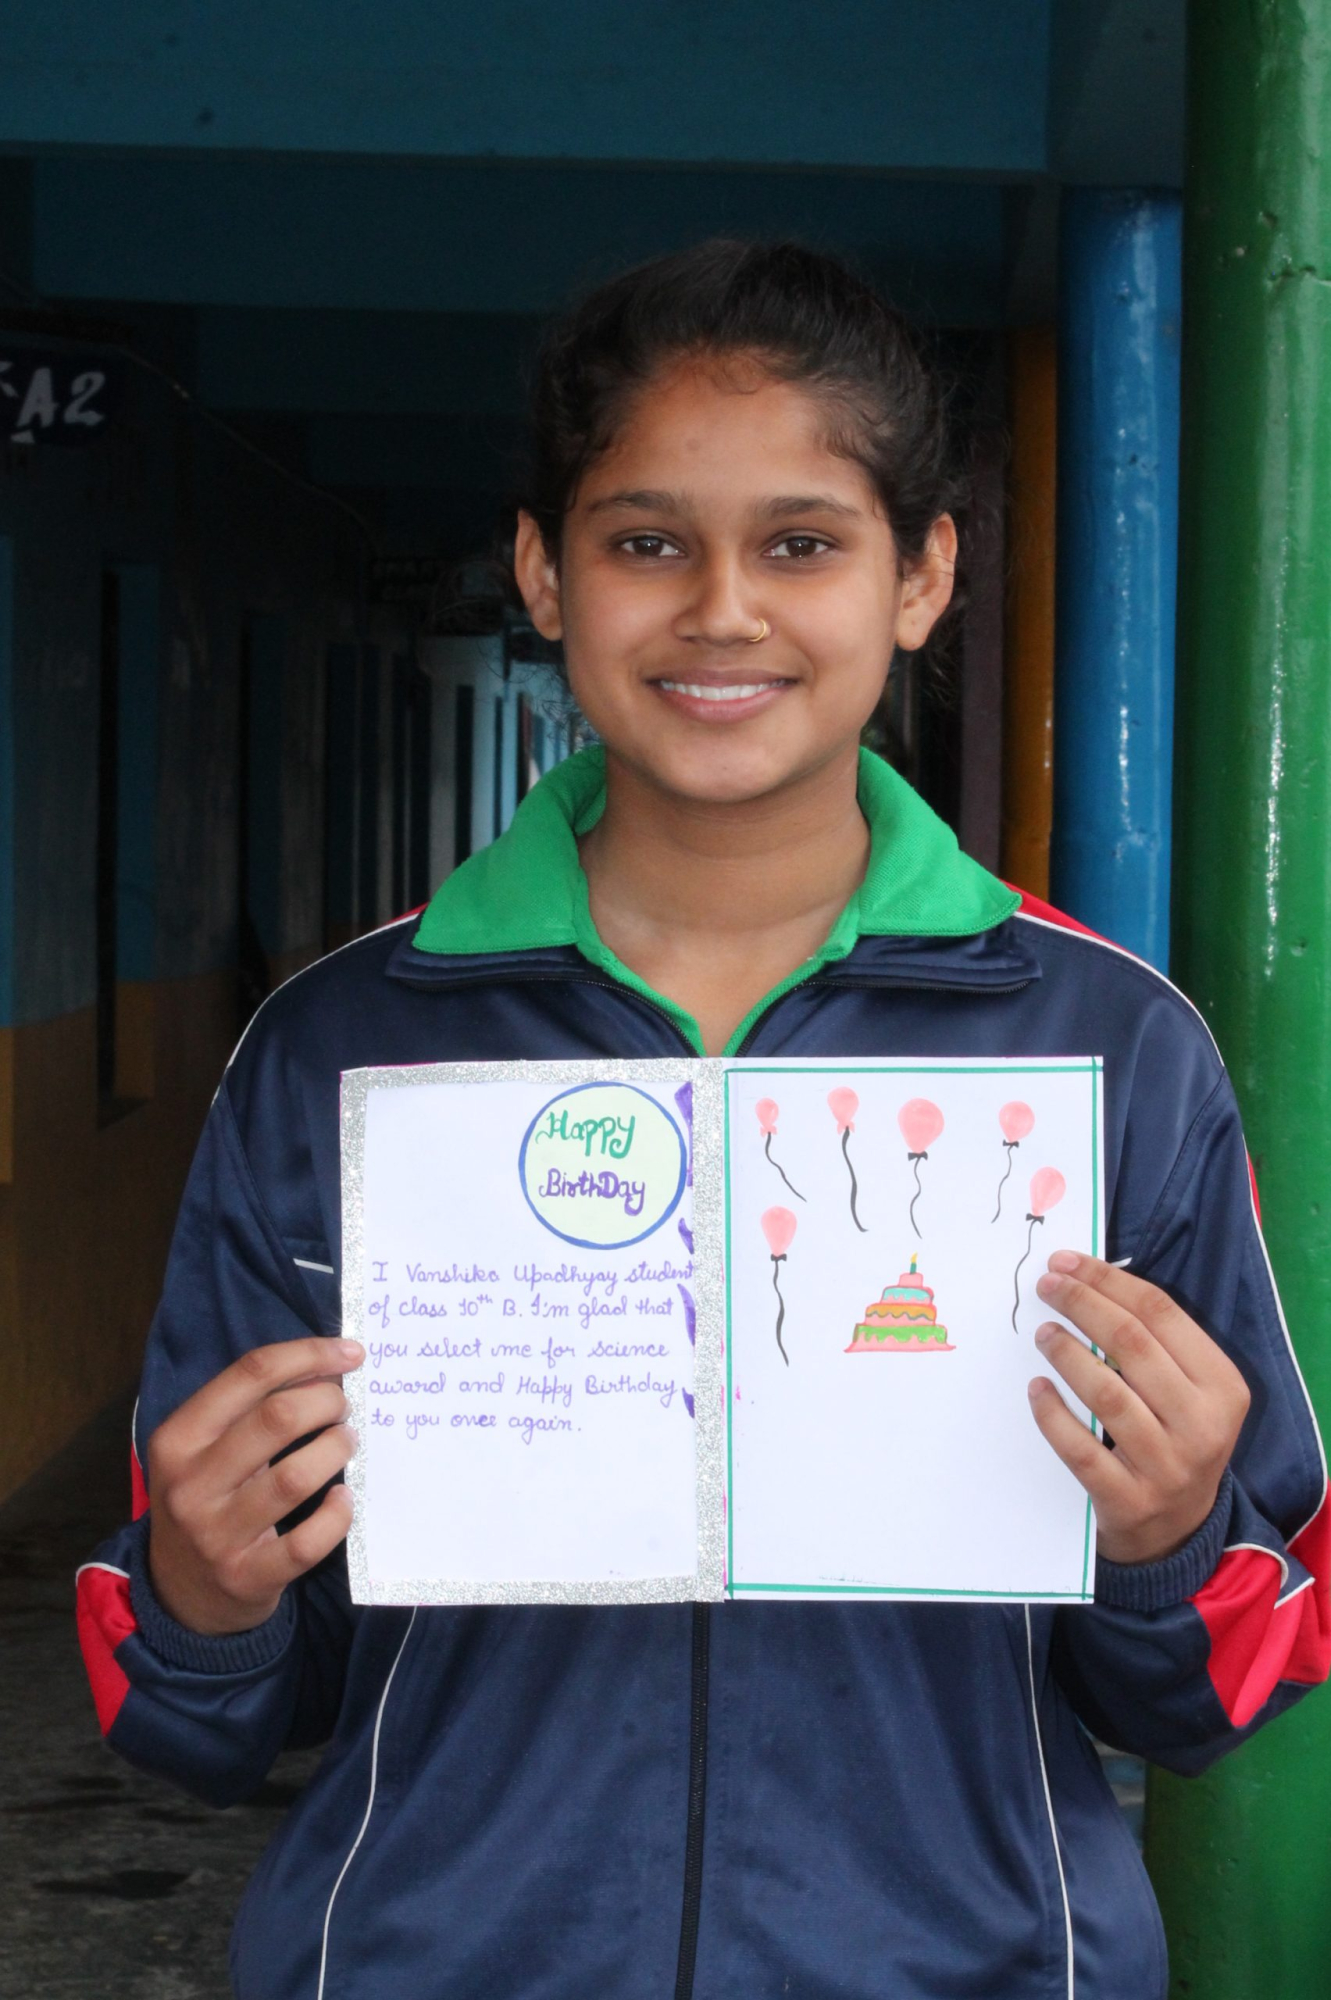 A2
Happy
BirthDay
I Vanshika Upadhyay student
of class 10th B. I'm glad that
you select me for science
award and Happy Birthday
to you once again.